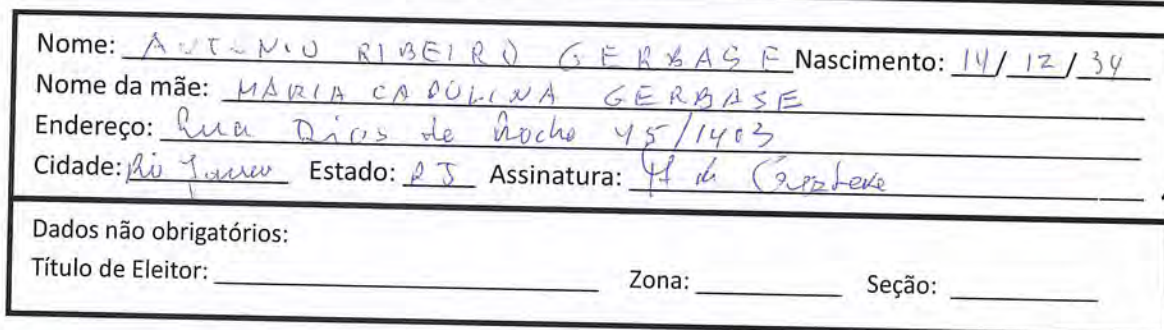 Nome: ANTONIO RIBEIRO GERBASE Nascimento: 14/12/34
Nome da mãe: MARIA CAROLINA GERBASE
Endereço: Rua Dias de Rocha 45/1403
Cidade: Rio Janeiro Estado: RJ Assinatura:
Dados não obrigatórios:
Título de Eleitor: Zona: Seção: